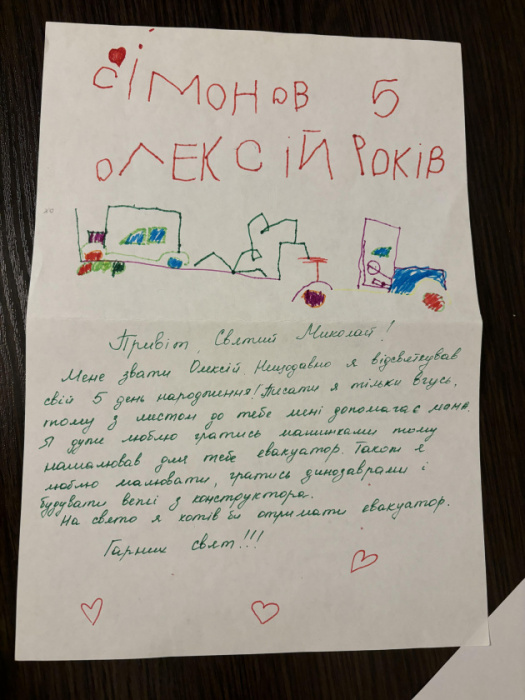 сІМОНОВ 5
ОЛЕКСІЙ РОКІВ
Привіт, Святий Миколай!
Мене звати Олексій. Нещодавно я відсвяткував
свій 5 день народження! Писати я тільки вчусь,
тому з листом до тебе мені допомагає мама.
Я дуже люблю гратись машинками тому
намалював для тебе евакуатор. Також я
люблю малювати, гратись динозаврами і
будувати вежі з конструктора.
На свято я хотів би отримати евакуатор.
Гарних свят!!!